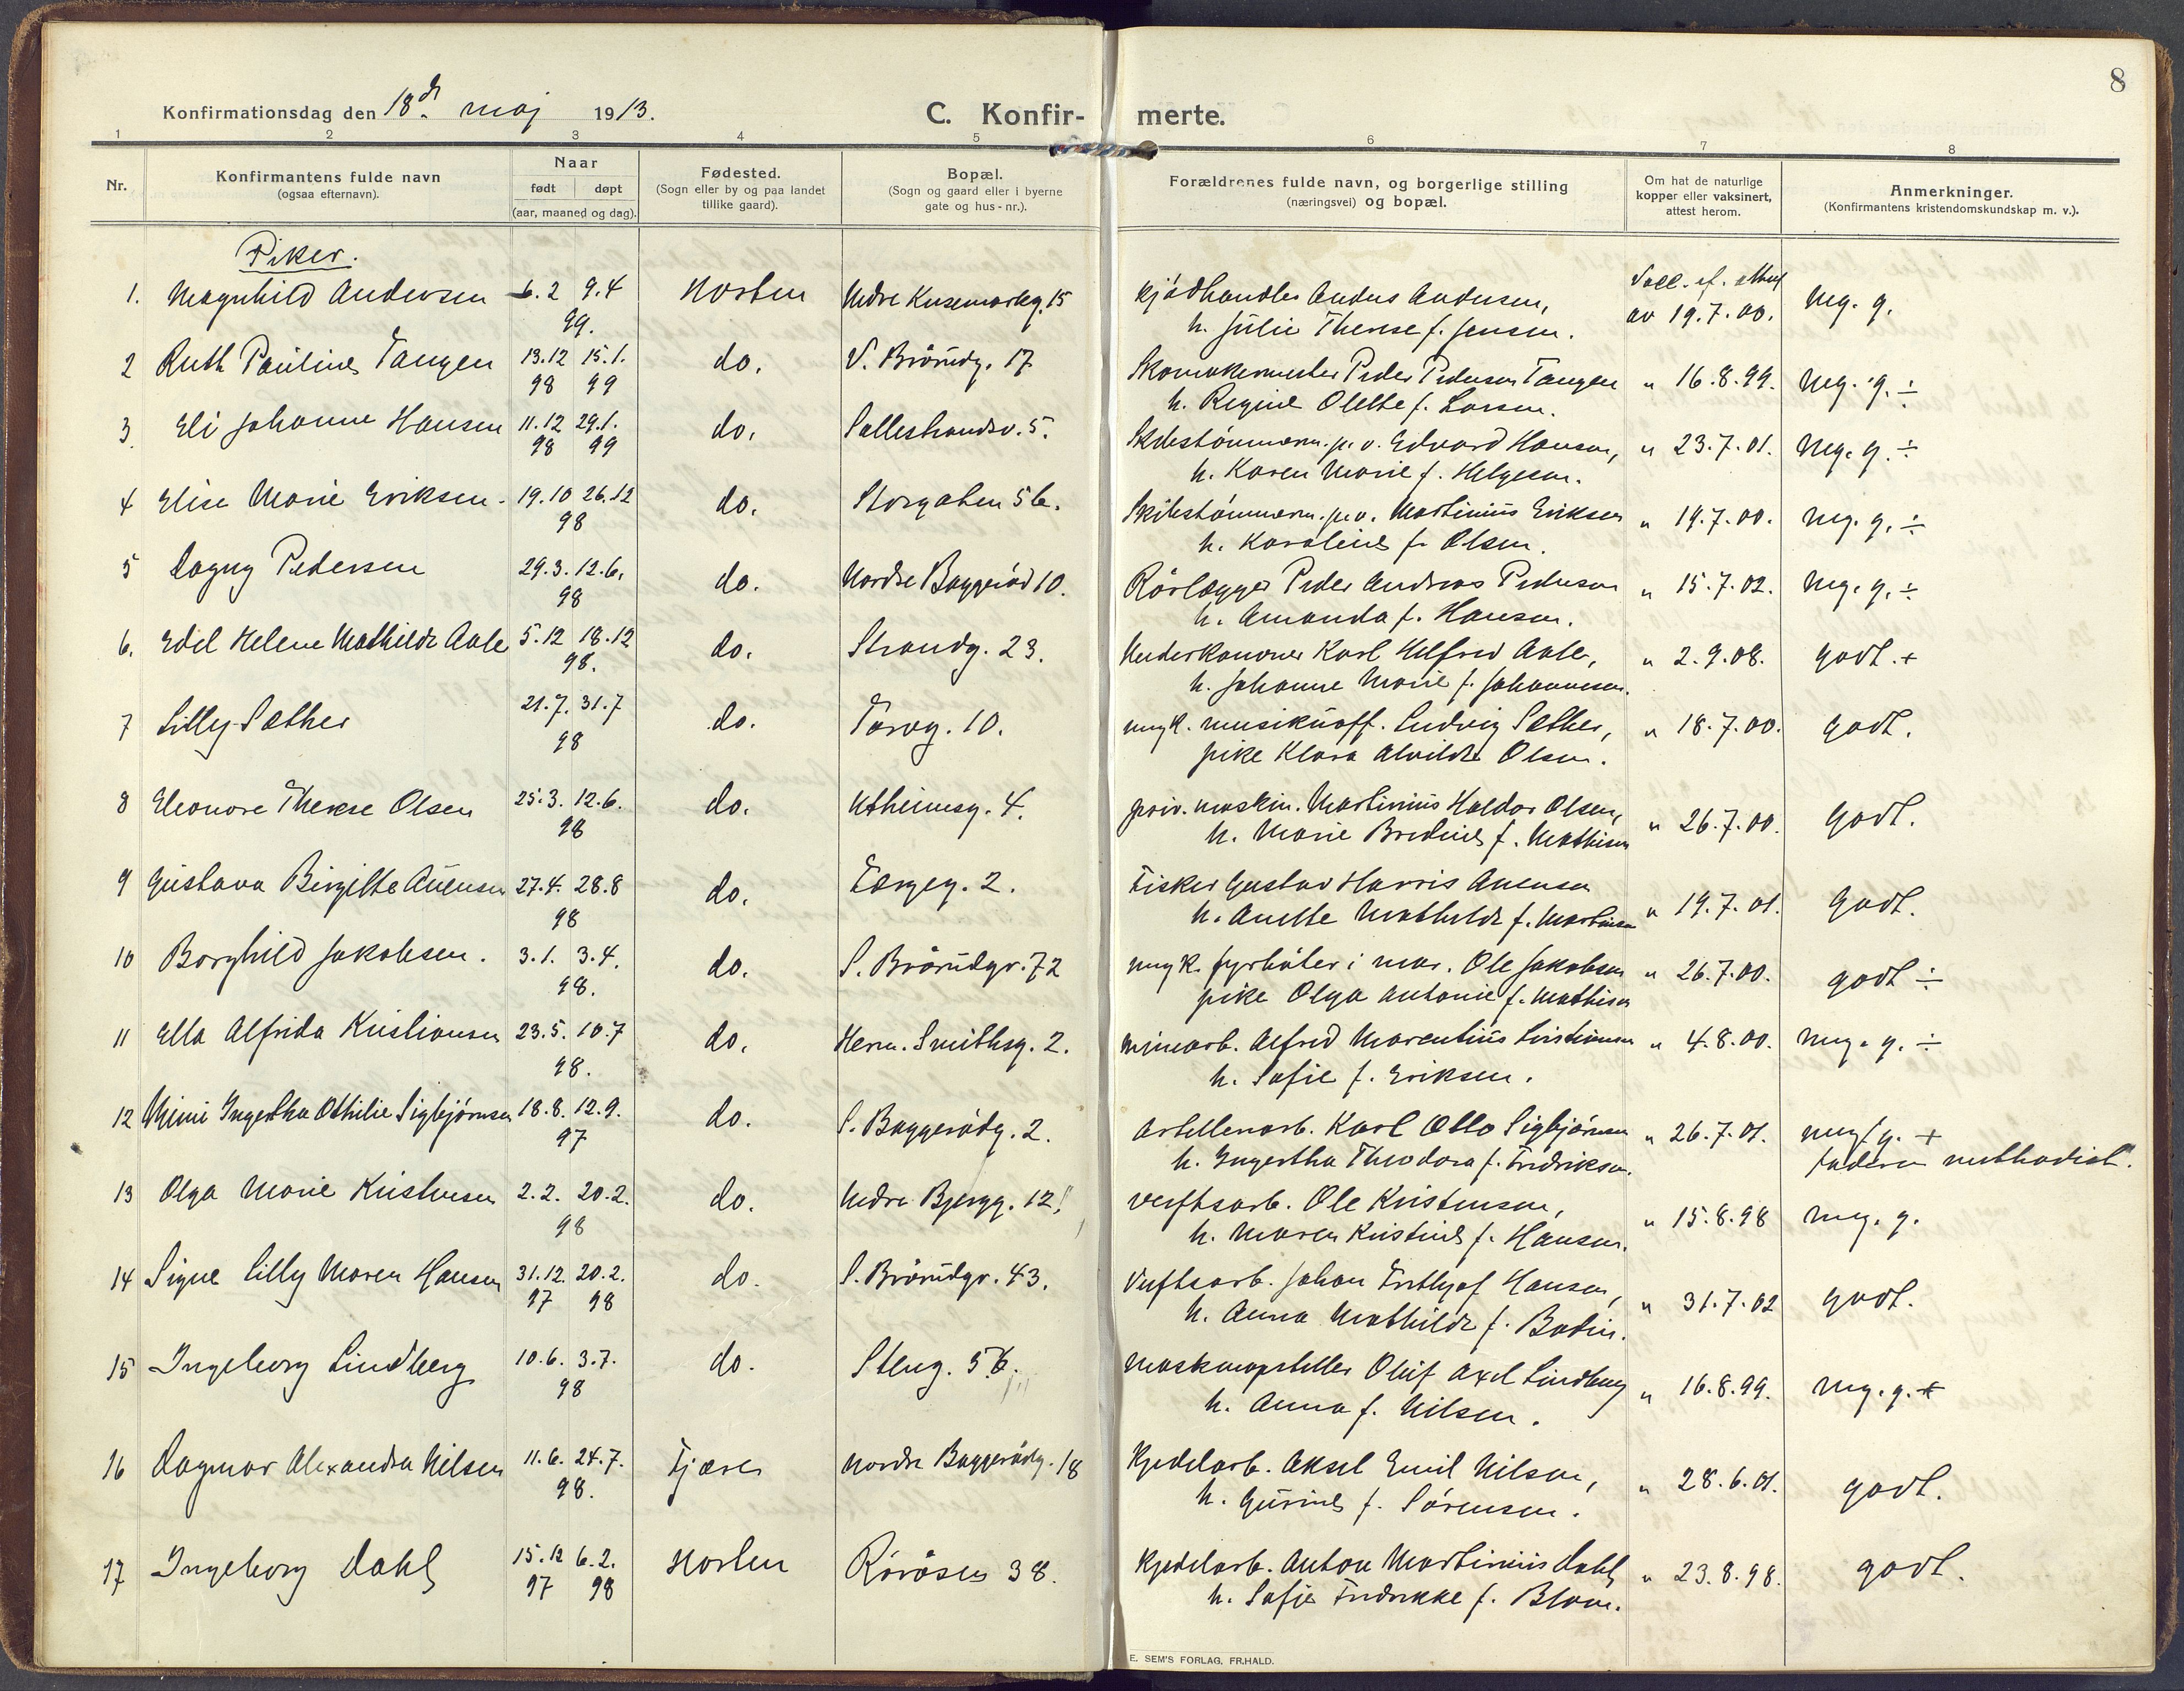 8
Konfirmationsdag den 18de maj 1913.
C. Konfir- merte.
1 2 3 4 5 6 7 8
Nr.
Konfirmantens fulde navn
(ogsaa efternavn).
Naar
født døpt
(aar, maaned og dag).
Fødested.
(Sogn eller by og paa landet
tillike gaard).
Bopæl.
(Sogn og gaard eller i byerne
gate og hus-nr.).
Forældrenes fulde navn, og borgerlige stilling
(næringsvei) og bopæl.
Om hat de naturlige
kopper eller vaksinert,
attest herom.
Anmerkninger.
(Konfirmantens kristendomskundskap m. v.).
Piker.
1. Magnhild Andersen 6.2 9.4 Horten Nedre Kusemarkg. 15 Kjødhandler Anders Andersen, Vacc. attest Mg. g.
99. h. Julie Therese f. Jensen. av 19.7.00.
2 Ruth Pauline Tangen 13.12 15.1. do. V. Brårudg. 17 Skomakermester Peder Pedersen Tangen " 16.8.99. Mg. g. ÷
98 99 h. Regine Olette f. Larsen.
3 Eli Johanne Hansen 11.12 29.1. do. Falkestrandsv. 5. Skibstømmerm. p. v. Edvard Hansen, " 23.7.01. Mg. g. ÷
98 99 h. Karen Marie f. Helgesen.
4 Elise Marie Eriksen. 19.10 26.12 do. Storgaten 56. Skibstømmerm. p. v. Martinius Eriksen " 19.7.00. Mg. g. ÷
98 h. Karoline f. Olsen.
5 Dagny Pedersen 29.3. 12.6. do. Nordre Baggerød 10. Rørlægger Peder Andreas Pedersen " 15.7.02. Mg. g. ÷
98 h. Amanda f. Hansen.
6. Edel Helene Mathilde Aale 5.12 18.12 do. Strandg. 23. Underkanoner Karl Helfred Aale, " 2.9.08. godt. +
98. h. Johanne Marie f. Johannesen.
7 Lilly Sæther 21.7. 31.7 do. Torvg. 10. ungk. musikuoff. Ludvig Sæther, " 18.7.00. godt.
98 pike Klara Alvilde Olsen.
8 Eleonore Therese Olsen 25.3. 12.6. do. Utheimsg. 4. priv. maskin. Martinius Haldor Olsen, " 26.7.00. godt.
98 h. Marie Bredine f. Mathisen
9 Gustava Birgitte Auensen 27.4. 28.8 do. Færgeg. 2. Fisker Gustav Harris Auensen " 19.7.01. godt.
98 h. Anette Mathilde f. Martinsen
10 Borghild Jakobsen. 3.1. 3.4. do. S. Brårudgr. 72 ungk. fyrbøter i mar. Ole Jakobsen " 26.7.00. godt ÷
98. pike Olga Antonie f. Mathisen
11 Ella Alfrida Kristiansen 23.5. 10.7 do. Herm. Smithsg. 2. minearb. Alfred Marentius Kristiansen " 4.8.00. mg. g. ÷
98. h. Sofie f. Eriksen.
12 Mimi Ingertha Othilie Sigbjørnsen 18.8. 12.9. do. S. Baggerødg. 2. artelleriarb. Karl Otto Sigbjørnsen " 26.7.01. mg. g. +
97 h. Ingertha Theodora f. Fredriksen. faderen methodist.
13 Olga Marie Kristensen 2.2. 20.2. do. Nedre Bjergg. 12. Verftsarb. Ole Kristensen, " 15.8.98 mg. g.
98 h. Maren Kristine f. Hansen.
14 Signe Lilly Maren Hansen 31.12. 20.2. do. S. Brårudgr. 43. Verftsarb. Johan Fritjof Hansen, " 31.7.02 godt.
97 98 h. Anna Mathilde f. Bodin.
15 Ingeborg Lindberg 10.6. 3.7. do. Steng. 5 Maskinopstiller Oluf Axel Lindberg " 16.8.99. mg. g. +
98 h. Anna f. Nilsen.
16 Dagmar Alexandra Nilsen 11.6. 24.7. Fjære Nordre Baggerødg. 18 Kjedelarb. Aksel Emil Nilsen, " 28.6.01. godt.
98. h. Gurine f. Sørensen.
17 Ingeborg Dahl 15.12 6.2. Horten Røråsen 38. Kjedelarb. Anton Martinius Dahl, " 23.8.98. godt.
97 98 h. Sofie Fredrikke f. Blom.
E. SEM'S FORLAG, FR.HALD.